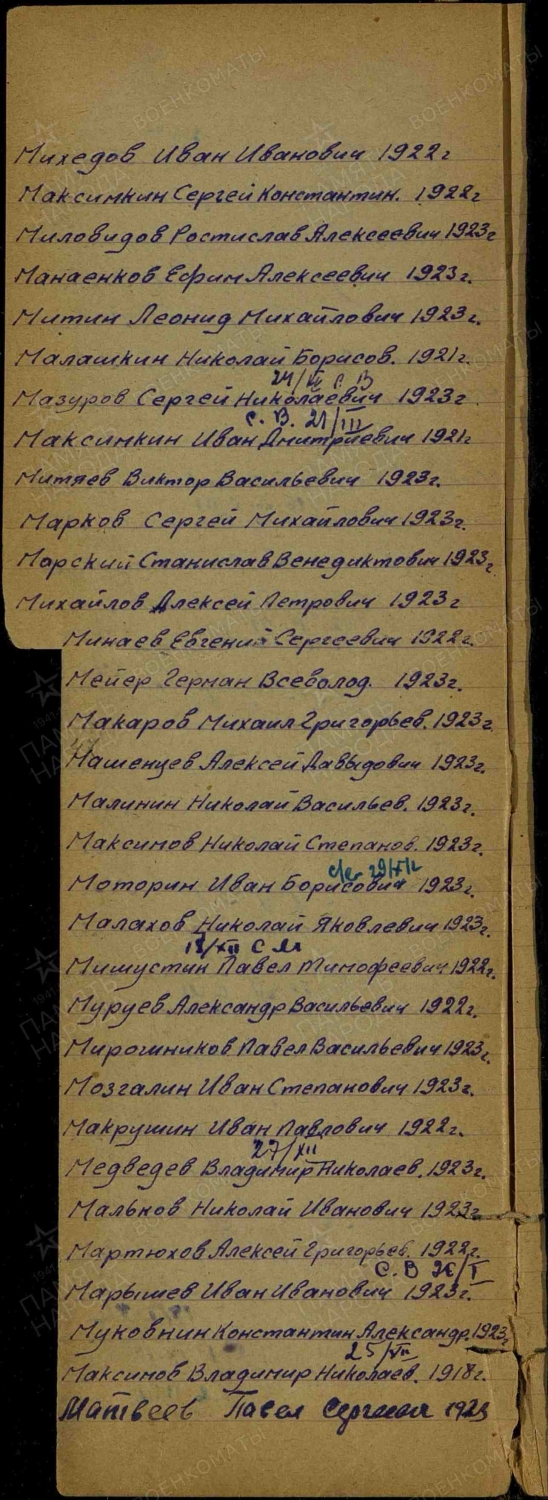 Михедов Иван Иванович 1922г
Максимкин Сергей Константин. 1922г
Миловидов Ростислав Алексеевич 1923г
Манаенков Ефим Алексеевич 1923г.
Митин Леонид Михайлович 1923г.
Малашкин Николай Борисов. 1921г.
С. В
Мазуров Сергей Николаевич 1923г
С. В. 21/III
Максимкин Иван Дмитриевич 1921г
Митяев Виктор Васильевич 1923г.
Марков Сергей Михайлович 1923г.
Морский Станислав Венедиктович 1923г.
Михайлов Алексей Петрович 1923г
Минаев Евгений Сергеевич 1922г.
Мейер Герман Всеволод. 1923г.
Макаров Михаил Григорьев. 1923г
Машенцев Алексей Давыдович 1923г.
Малинин Николай Васильев. 1923г.
Максимов Николай Степанов. 1923г.
Моторин Иван Борисович 1923г.
Малахов Николай Яковлевич 1923г.
18/XII С М
Мишустин Павел Тимофеевич 1922г.
Муруев Александр Васильевич 1922г.
Мирошников Павел Васильевич 1923г.
Мозгалин Иван Степанович 1923г.
Макрушин Иван Павлович 1922г.
27/XII
Медведев Владимир Николаев. 1923г.
Мальков Николай Иванович 1923г
Мартюхов Алексей Григорьев. 1922г.
С. В
Марышев Иван Иванович 1923г.
Муковнин Константин Александр. 1923г
25/VII
Максимов Владимир Николаев. 1918г.
Матвеев Павел Сергеевич 1923